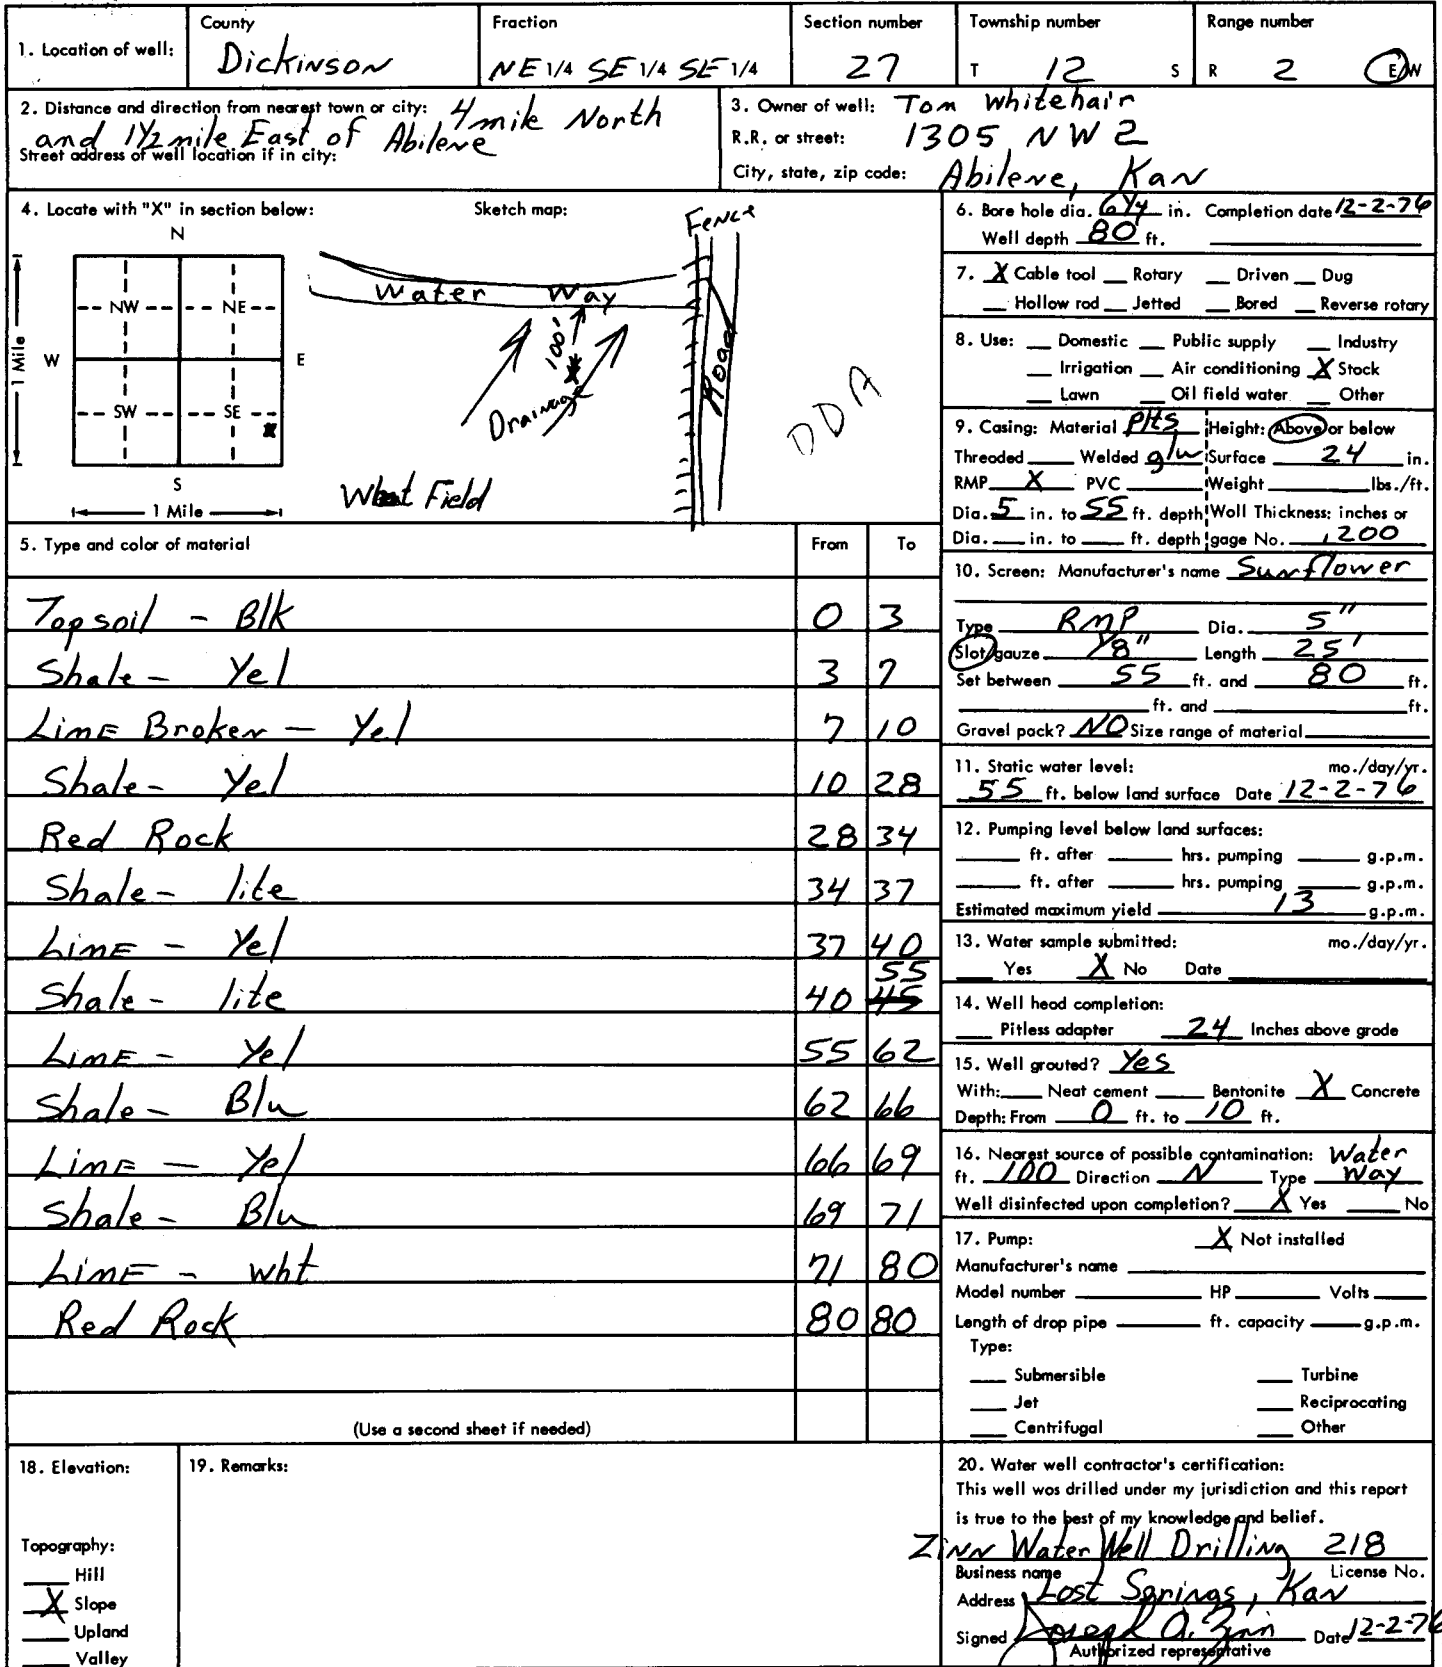 1. Location of well:
County
Dickinson
Fraction
NE 1/4 SE 1/4 SE 1/4
Section number
27
Township number
T 12 S
Range number
R 2 E/W
2. Distance and direction from nearest town or city: 4 mile North
and 1 1/2 mile East of Abilene
Street address of well location if in city:
3. Owner of well: Tom Whitehair
R.R. or street: 1305 NW 2
City, state, zip code: Abilene, Kan
4. Locate with "X" in section below:
N
NW NE
W E
SW SE
X
S
1 Mile
1 Mile
Sketch map:
Fence
Water Way
100'
X
Drainage
Road
Field
DDA
5. Type and color of material From To
Topsoil - Blk 0 3
Shale - Yel 3 7
Lime Broken - Yel 7 10
Shale - Yel 10 28
Red Rock 28 34
Shale - lite 34 37
Lime - Yel 37 40
55
Shale - lite 40 45
Lime - Yel 55 62
Shale - Blu 62 66
Lime - Yel 66 69
Shale - Blu 69 71
Lime - Wht 71 80
Red Rock 80 80
(Use a second sheet if needed)
6. Bore hole dia. 6 1/4 in. Completion date 12-2-76
Well depth 80 ft.
7. X Cable tool Rotary Driven Dug
Hollow rod Jetted Bored Reverse rotary
8. Use: Domestic Public supply Industry
Irrigation Air conditioning X Stock
Lawn Oil field water Other
9. Casing: Material Height: Above or below
Threaded Welded glu Surface 24 in.
RMP X PVC Weight lbs./ft.
Dia. 5 in. to 55 ft. depth Wall Thickness: inches or
Dia. in. to ft. depth gage No. .200
10. Screen: Manufacturer's name Sunflower
Type RMP Dia. 5"
Slot/gauze 1/8" Length 25'
Set between 55 ft. and 80 ft.
ft. and ft.
Gravel pack? NO Size range of material
11. Static water level: mo./day/yr.
55 ft. below land surface Date 12-2-76
12. Pumping level below land surfaces:
ft. after hrs. pumping g.p.m.
ft. after hrs. pumping g.p.m.
Estimated maximum yield 13 g.p.m.
13. Water sample submitted: mo./day/yr.
Yes X No Date
14. Well head completion:
Pitless adapter 24 Inches above grade
15. Well grouted? Yes
With: Neat cement Bentonite X Concrete
Depth: From 0 ft. to 10 ft.
16. Nearest source of possible contamination: Water
ft. 100 Direction N Type Way
Well disinfected upon completion? X Yes No
17. Pump: X Not installed
Manufacturer's name
Model number HP Volts
Length of drop pipe ft. capacity g.p.m.
Type:
Submersible Turbine
Jet Reciprocating
Centrifugal Other
18. Elevation:
Topography:
Hill
X Slope
Upland
Valley
19. Remarks:
20. Water well contractor's certification:
This well was drilled under my jurisdiction and this report
is true to the best of my knowledge and belief.
Zinn Water Well Drilling 218
Business name License No.
Address Lost Springs, Kan
Signed Joseph A. Zinn Date 12-2-76
Authorized representative